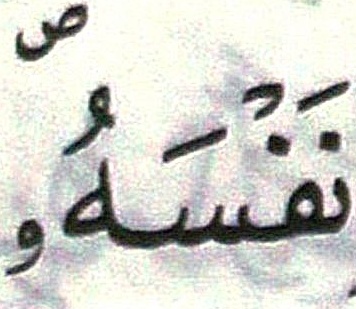 نَفْسَهُۥ ۖ